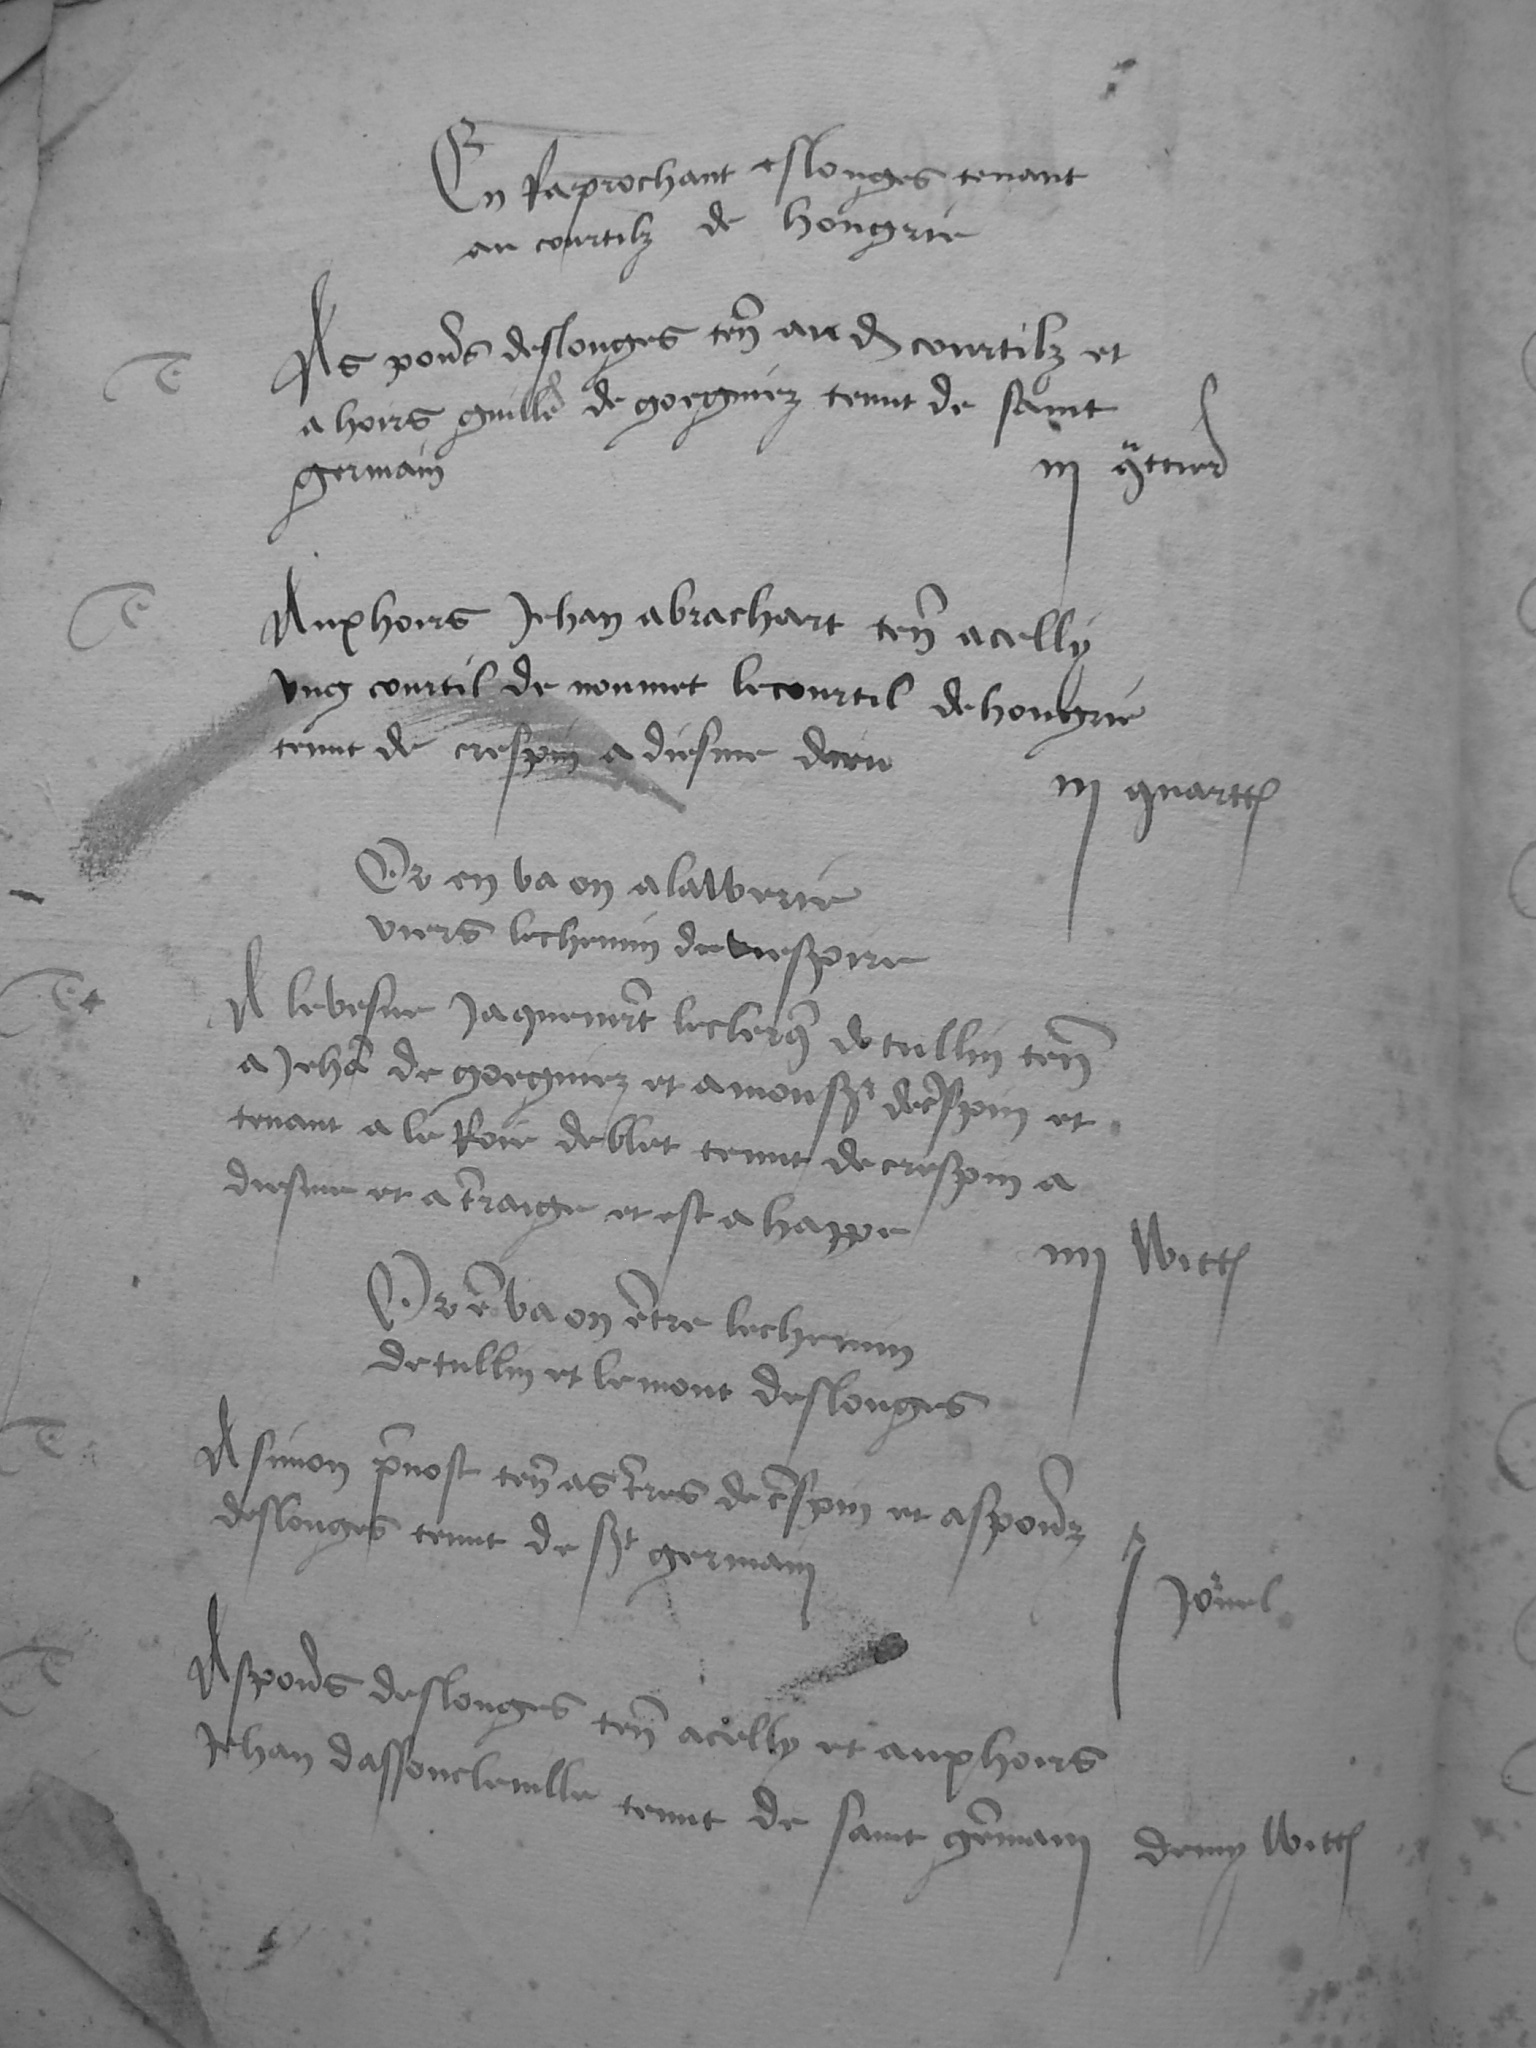 En Raprochant eslonges tenant
au courtilz de hongrie
As povrs deslonges ten au dt courtilz et
a hoirs guille de goegniez tenut de saint
germain iij qttier
Aux hoirs Jehan abrachart ten a celly
ung courtil de nommet le courtil de hongrie
tenut de crespin a diesme iij quartt
Or en va on a la Werie
viers le chemin de viespire
A levesne Jaquemrt le clercq de tullin ten
a Jeha de goegniez et a monsr de cspin et
tenant a le Roie de blet tenut de crespin a
diesme et a traige et est a happe iiij Witt
Or e va on etre le chemin
de tullin et le mont deslonges
A simon pvost ten as tres de cspin et as povrz
deslonges tenut de st germain j Jornel
As povrs deslonges ten a celly et aux hoirs
Jehan dassonclevulle tenut de saint gmain demy Witt